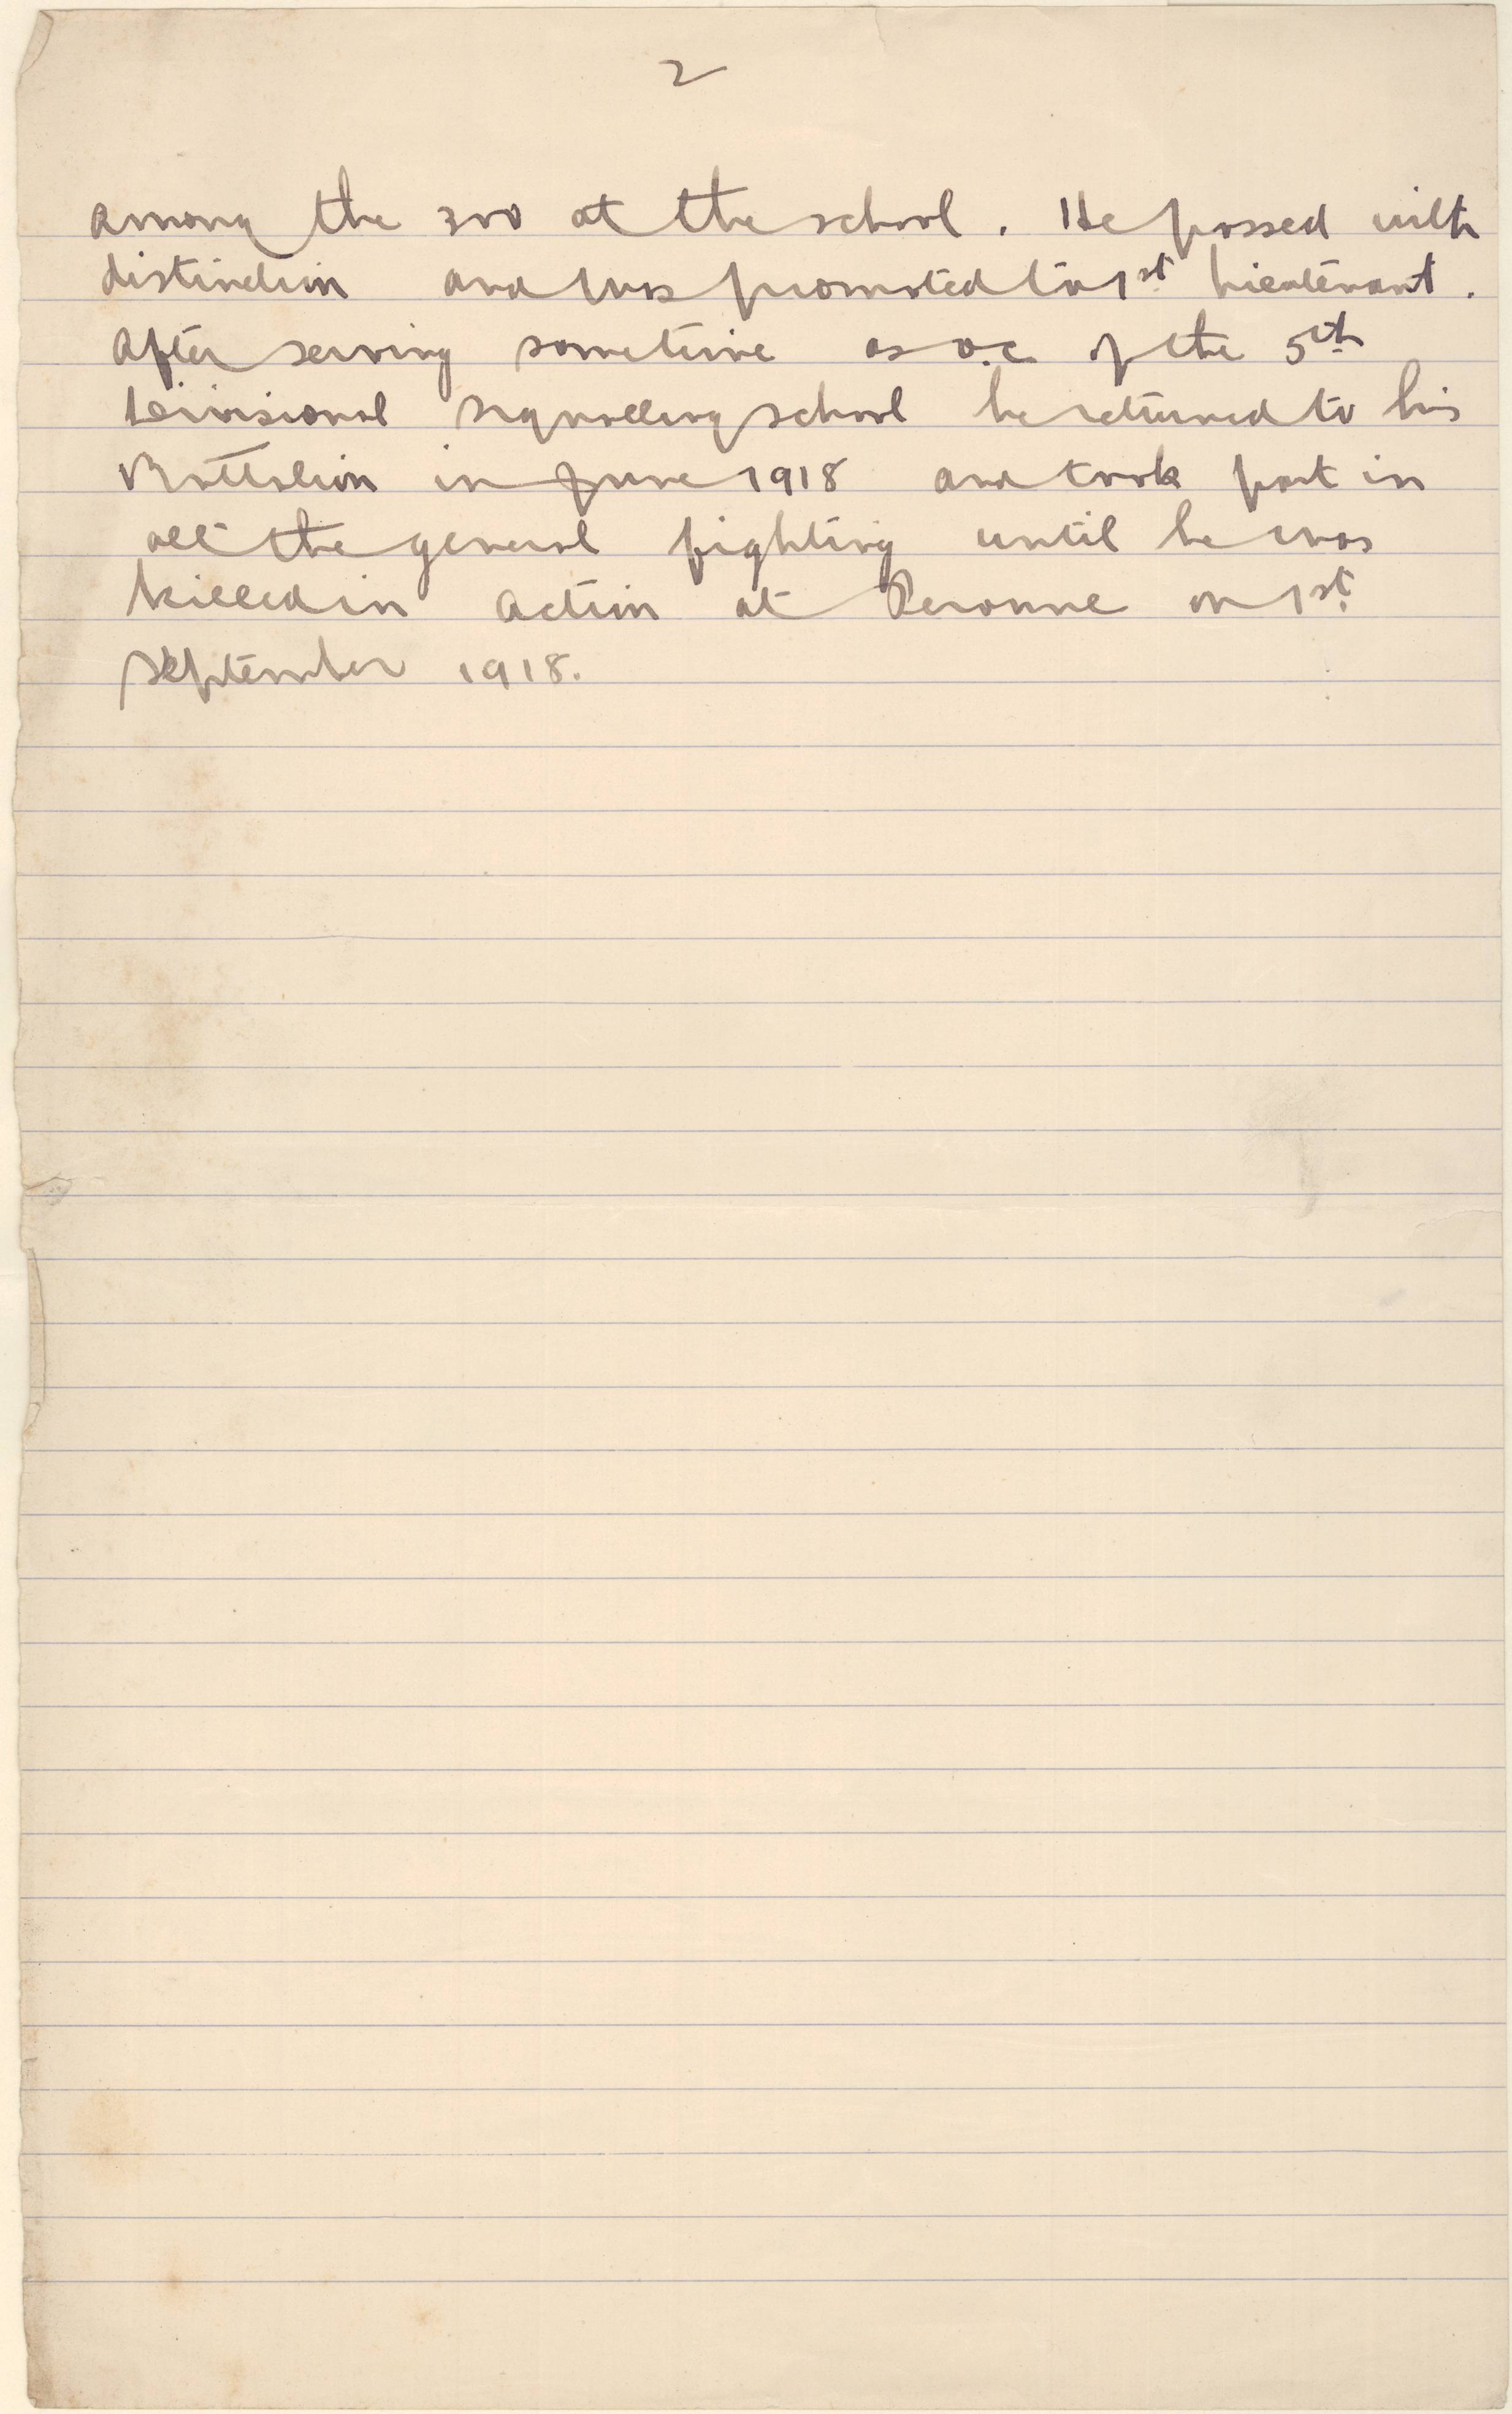 2
among the 300 at the school. He passed with
distinction and was promoted to 1st Lieutenant.
After serving sometime as O.C. of the 5th
Divisional signalling school he returned to his
Battalion in June 1918 and took part in
all the general fighting until he was
killed in action at Peronne on 1st
September 1918.